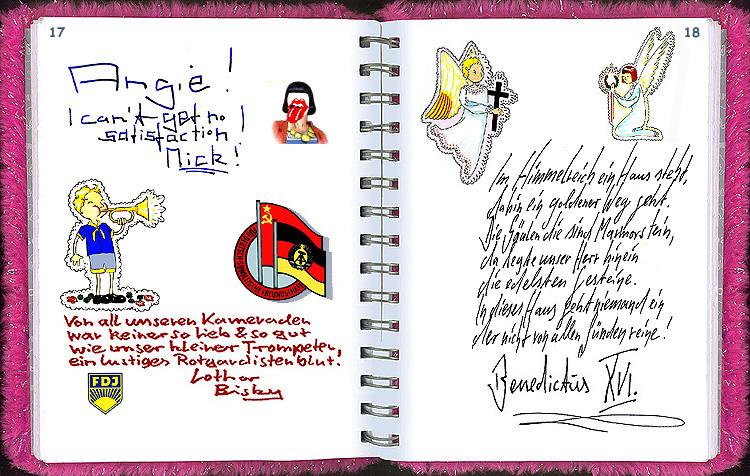 17
Angie!
I can't get no
satisfaction!
Mick!
Von all unseren Kameraden
war keiner so lieb & so gut
wie unser kleiner Trompeter,
ein lustiges Rotgardistenblut.
Lothar
Bisky
FDJ
18
Im Himmelreich ein Haus steht,
dahin ein goldener Weg geht.
Die Säulen die sind Marmorstein,
da legte unser Herr hinein
die edelsten Gesteine.
In dieses Haus geht niemand ein
der nicht von allen Sünden reine!
Benedictus XVI.